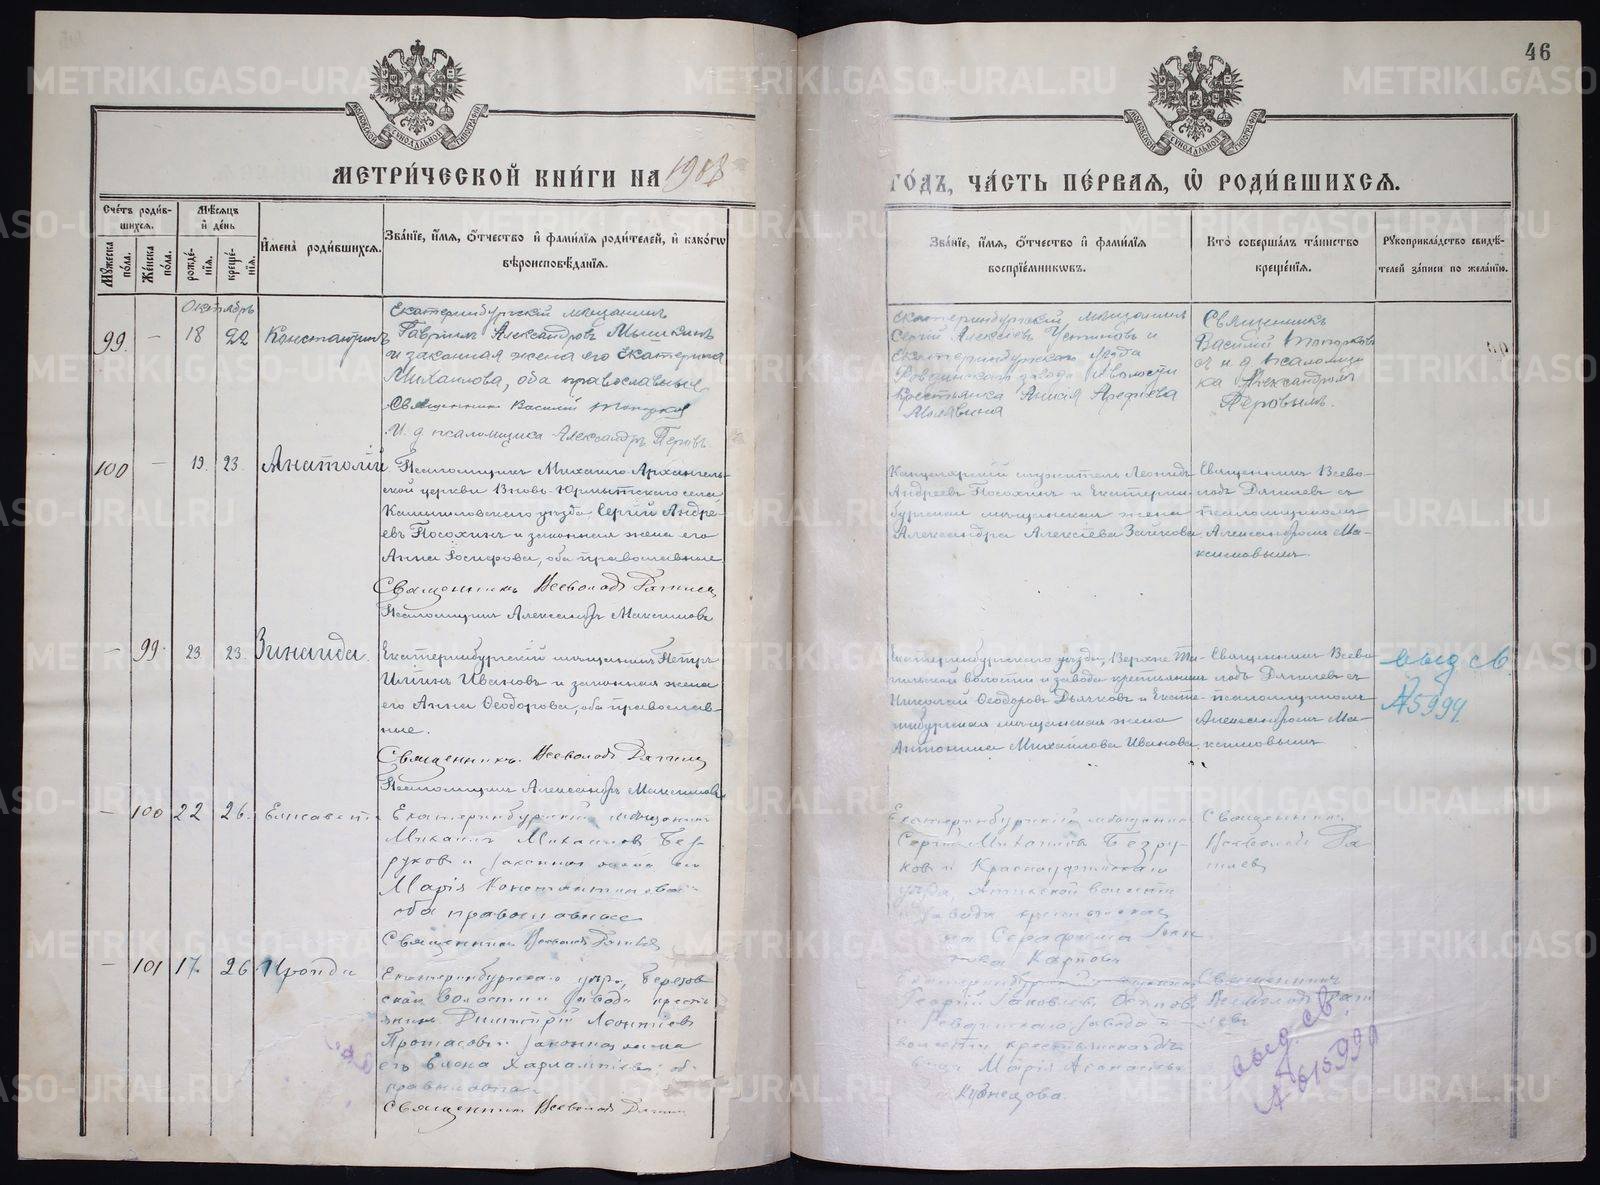 46
МЕТРИ́ЧЕСКОЙ КНИ́ГИ НА 1908
ГО́ДЪ, ЧА́СТЬ ПЕ́РВАЯ, Ѡ РОДИ́ВШИХСЯ.
Сче́тъ роди́в-
шихся.
Мѣ́сяцъ
и де́нь
Мꙋ́жеска по́ла.
Же́нска по́ла.
рожде́-нїя.
креще́-нїя.
И҆мена̀ роди́вшихся.
Зва́нїе, и҆́мя, ѻ҆́тчество и҆ фами́лїя роди́телей, и҆ како́гѡ
вѣроисповѣ́данїя.
Зва́нїе, и҆́мя, ѻ҆́тчество и҆ фами́лїя
воспрїе́мникѡвъ.
Кто̀ соверша́лъ та́инство
креще́нїя.
Рꙋкоприкла́дство свидѣ́-
телей за́писи по жела́нїю.
Октябрь
99. — 18 22 Константинъ
Екатеринбургскій мѣщанинъ
Гавріилъ Александровъ Мышкинъ
и законная жена его Екатерина
Михаилова, оба православные
Священникъ Василій
И. д. псаломщика Александръ Перовъ
Екатеринбургскій мѣщанинъ
Сергій Алексіевъ Устиновъ и
Екатеринбургскаго уѣзда
Ревдинскаго завода и волости
крестьянка Анисія Арефіева
Священникъ
Василій
с и. д. псаломщи
ка Александромъ
Перовымъ.
100 — 19. 23. Анатолій
Псаломщикъ Михаило-Архангель-
ской церкви Вновь-Юрмытскаго села
Камышловскаго уѣзда Сергій Андре-
евъ Посохинъ и законная жена его
Анна Іосифова, оба православные
Священникъ Всеволодъ
Псаломщикъ Александръ Максимовъ
Канцелярскій служитель Леонидъ
Андреевъ Посохинъ и Екатерин-
бургская мѣщанская жена
Александра Алексіева Зайкова
Священникъ Всево-
лодъ съ
псаломщикомъ
Александромъ Ма-
ксимовымъ.
— 99. 23 23. Зинаида.
Екатеринбургскій мѣщанинъ Петръ
Иліинъ Ивановъ и законная жена
его Анна Ѳеодорова, оба православ-
ные.
Священникъ Всеволодъ
Псаломщикъ Александръ Максимовъ
Екатеринбургскаго уѣзда, Верхне Та-
гильской волости и завода крестьянинъ
Николай Ѳеодоровъ Дьячковъ и Екате-
ринбургская мѣщанская жена
Антонина Михайлова Иванова.
Священникъ Всево
лодъ съ
псаломщикомъ
Александромъ Ма-
ксимовымъ
выд. св.
№5994.
— 100 22 26. Елисавета
Екатеринбургскій мѣщанинъ
Михаилъ Михаиловъ Без-
руковъ и законная жена его
Марія Константинова
оба православные
Священникъ Всеволодъ
Екатеринбургскій мѣщанинъ
Сергій Михаиловъ Безру-
ковъ и Красноуфимскаго
уѣзда, волости
завода крестьянская
Серафима
Священникъ
Всеволодъ
— 101 17. 26 Ираида
Екатеринбургскаго уѣзда, Березов
ской волости и завода кресть
янинъ Димитрій Леонтіевъ
Протасовъ и законная жена
его Елена Харлампіева об
православные
Священникъ Всеволодъ
Екатеринбургскій
Георгій Іаковлевъ
и Ревдинскаго завода и
волости крестьянская дѣ-
вица Марія
Кузнецова.
Священникъ
Всеволодъ
выд. св.
METRIKI.GASO-URAL.RU